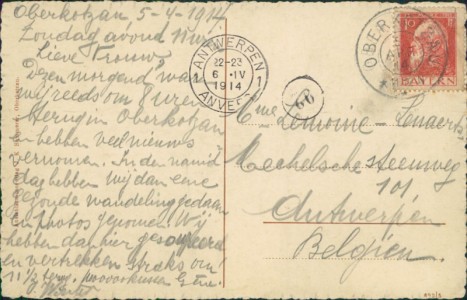 Oberkotzau 5-4-1914
Zondag avond
Lieve Vrouw,
Dezen morgend, wa
wij reeds om 8 uren
terug in Oberkotzau
en hebben veel nieuws
vernomen. In den namid
dag hebben wij dan eene
Goude wandeling gedaan
en photos genomen. Wij
hebben dan hier gesoupeerd
en vertrekken straks om
11 ½ terug.
ANTWERPEN
1 22-23 1
6 IV
1914
ANVERS
99
OBER
10
BAYERN
Mme Lemoine-Lenaerts
Mechelsche steenweg
101
Antwerpen
Belgien.